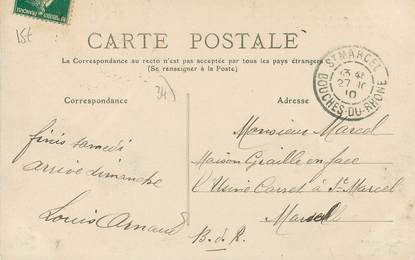 15t
CARTE POSTALE
La Correspondance au recto n'est pas acceptée par tous les pays étrangers
(Se renseigner à la Poste)
ST MARCEL
27
10
BOUCHES-DU-RHÔNE
Correspondance
34
Adresse
finis samedi
arrive dimanche
Louis Arnaud
Monsieur Marcel
Maison Graille en face
l'Usine Carret à St Marcel
Marseille
B. d. R.